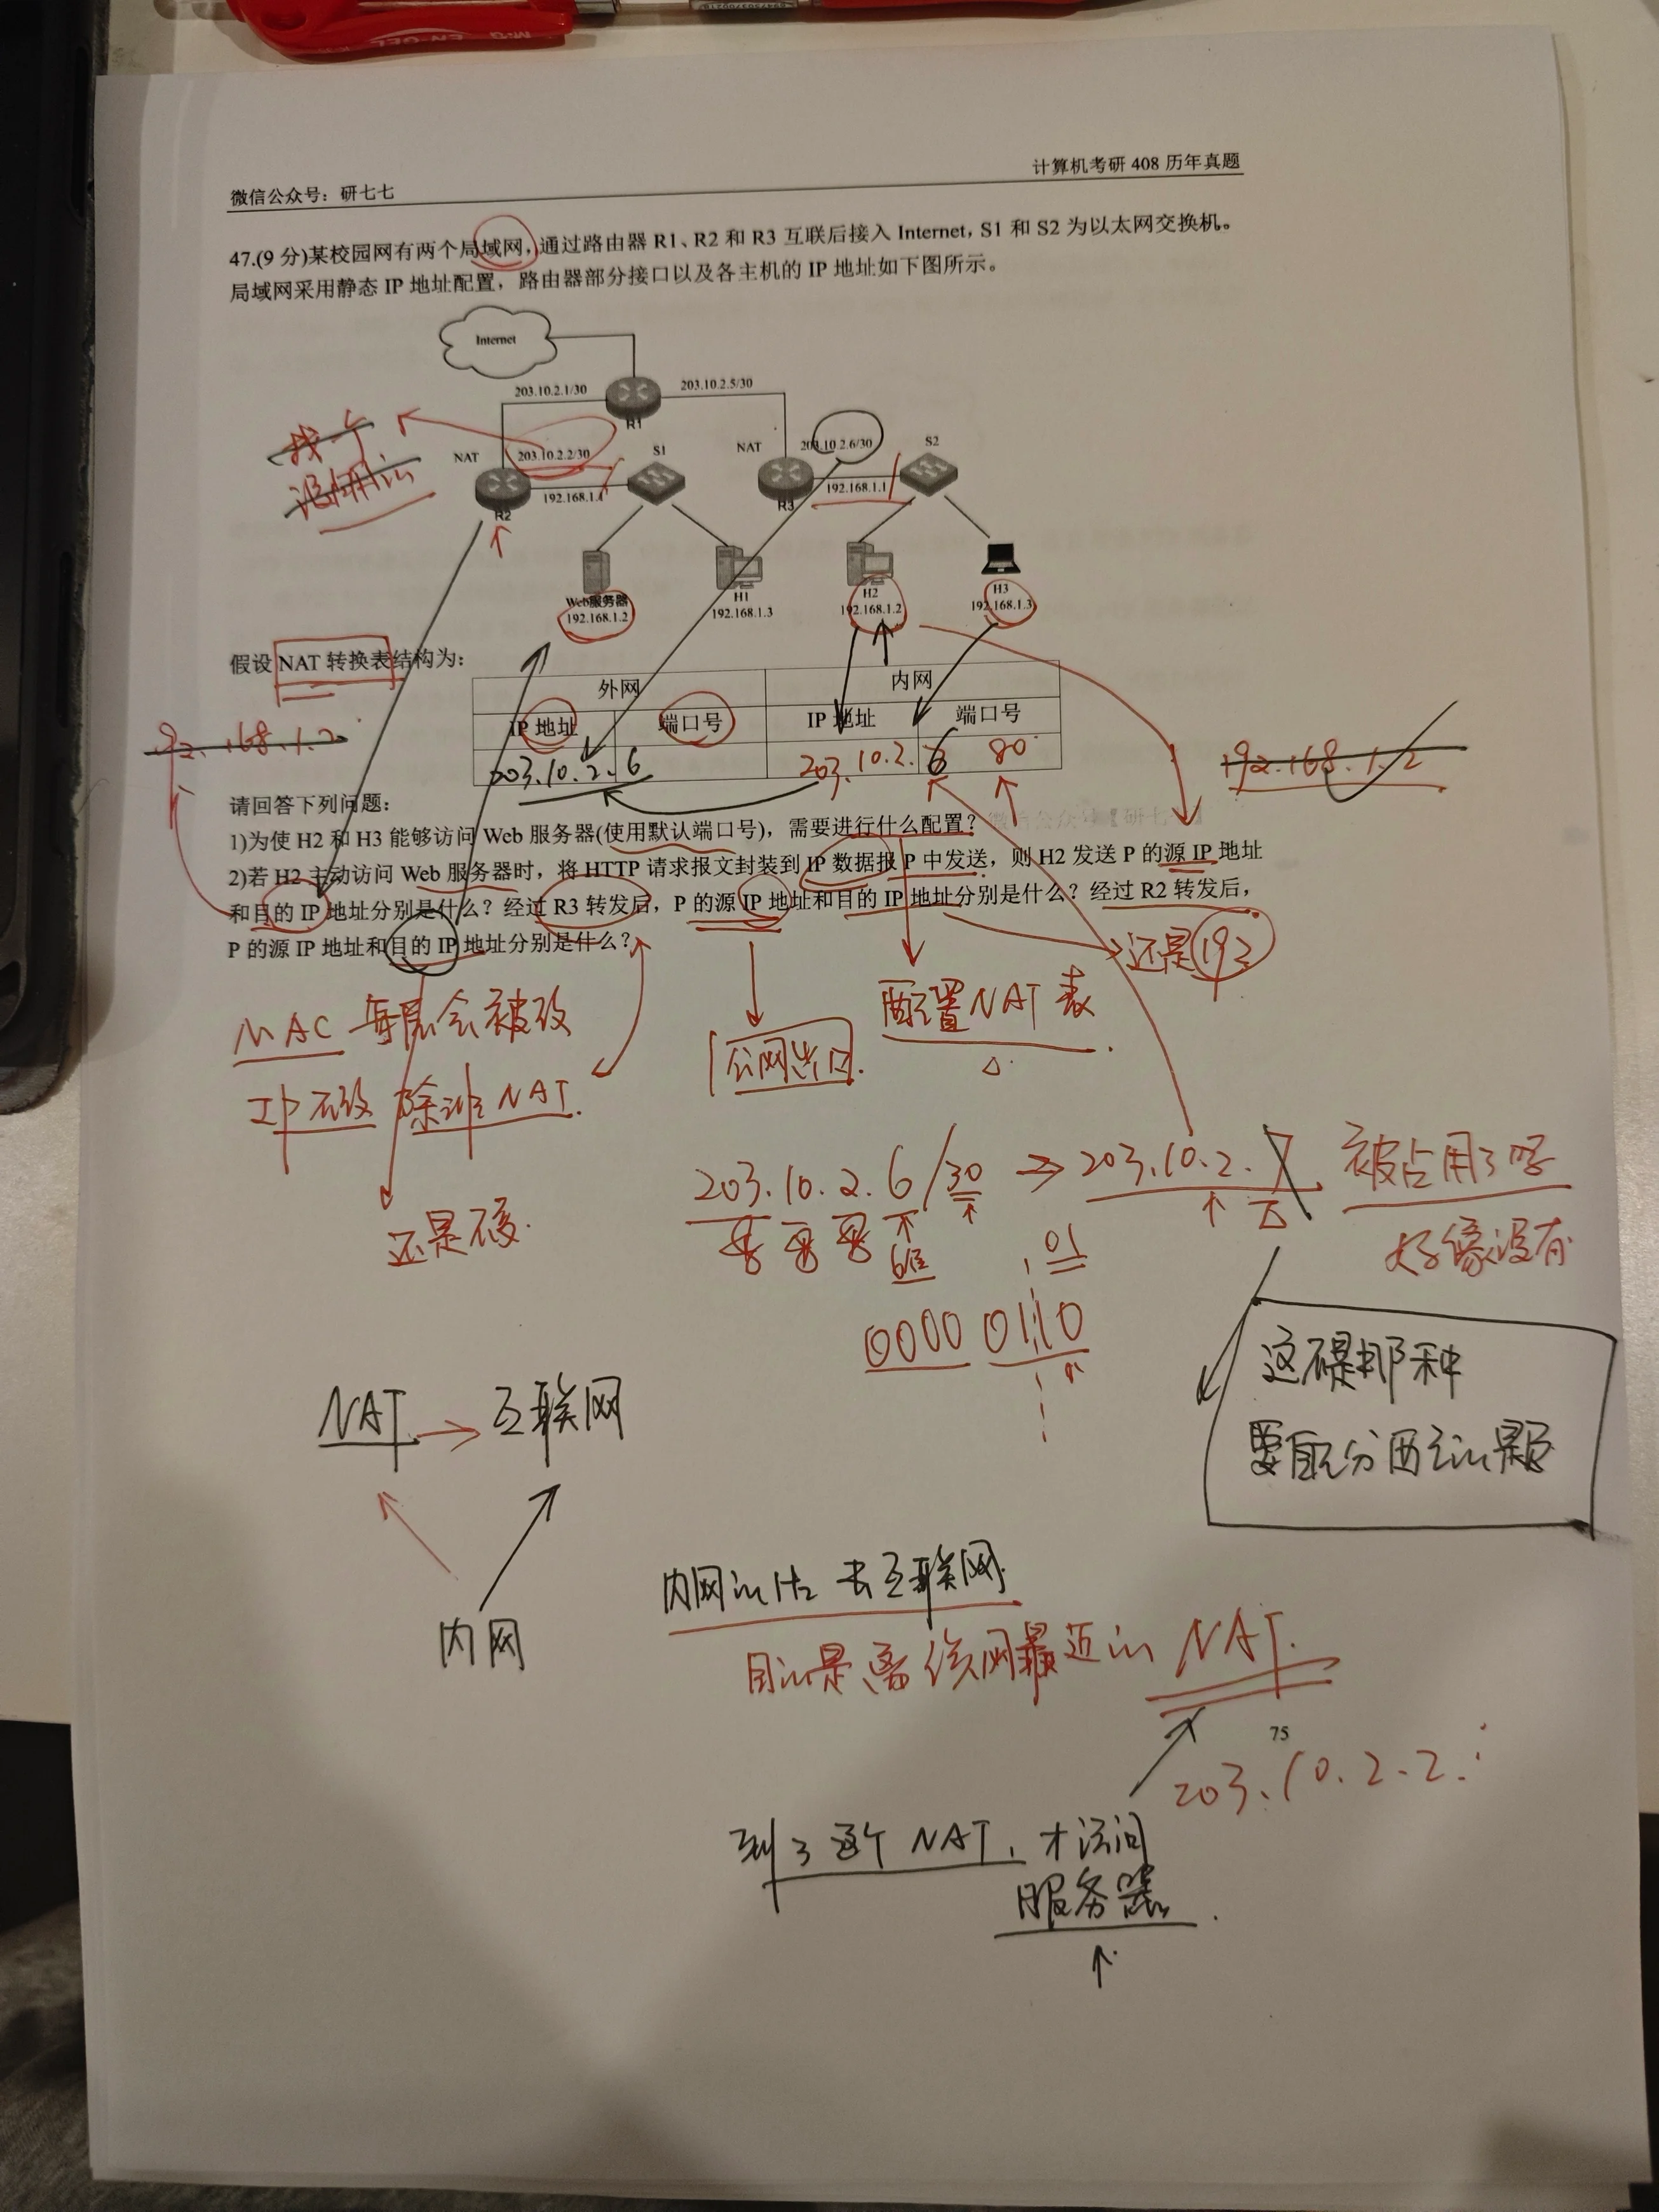 微信公众号：研七七
计算机考研 408 历年真题
47.(9 分)某校园网有两个局域网，通过路由器 R1、R2 和 R3 互联后接入 Internet, S1 和 S2 为以太网交换机。
局域网采用静态 IP 地址配置，路由器部分接口以及各主机的 IP 地址如下图所示。
Internet
203.10.2.1/30
203.10.2.5/30
R1
找个
没用的
NAT
203.10.2.2/30
S1
NAT
203.10.2.6/30
S2
192.168.1.1
192.168.1.1
R2
R3
Web服务器
192.168.1.2
H1
192.168.1.3
H2
192.168.1.2
H3
192.168.1.3
假设 NAT 转换表结构为：
外网
内网
IP 地址
端口号
IP 地址
端口号
203.10.2.6
203.10.2.6
80
192.168.1.2
192.168.1.2
请回答下列问题：
1)为使 H2 和 H3 能够访问 Web 服务器(使用默认端口号)，需要进行什么配置？
2)若 H2 主动访问 Web 服务器时，将 HTTP 请求报文封装到 IP 数据报 P 中发送，则 H2 发送 P 的源 IP 地址
和目的 IP 地址分别是什么？经过 R3 转发后，P 的源 IP 地址和目的 IP 地址分别是什么？经过 R2 转发后，
P 的源 IP 地址和目的 IP 地址分别是什么？
还是192
配置NAT表
MAC 每层会被改
公网出口
IP 不改 除非NAT.
还是不变.
203.10.2.6/30 ⇒ 203.10.2.7 被占用了呀
好像没有
01
0000 0110
这不是那种
要自己分配的题
NAT → 互联网
内网
内网的H2 去互联网
目的是离该网最近的 NAT.
75
203.10.2.2.
到了这个 NAT, 才访问
服务器.